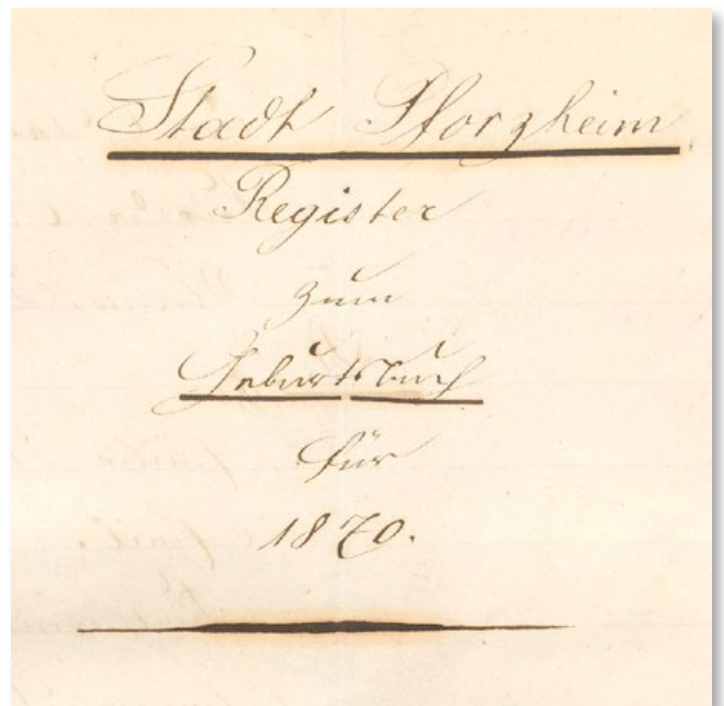 Stadt Pforzheim.
Register
zum
Geburtsbuch
für
1870.